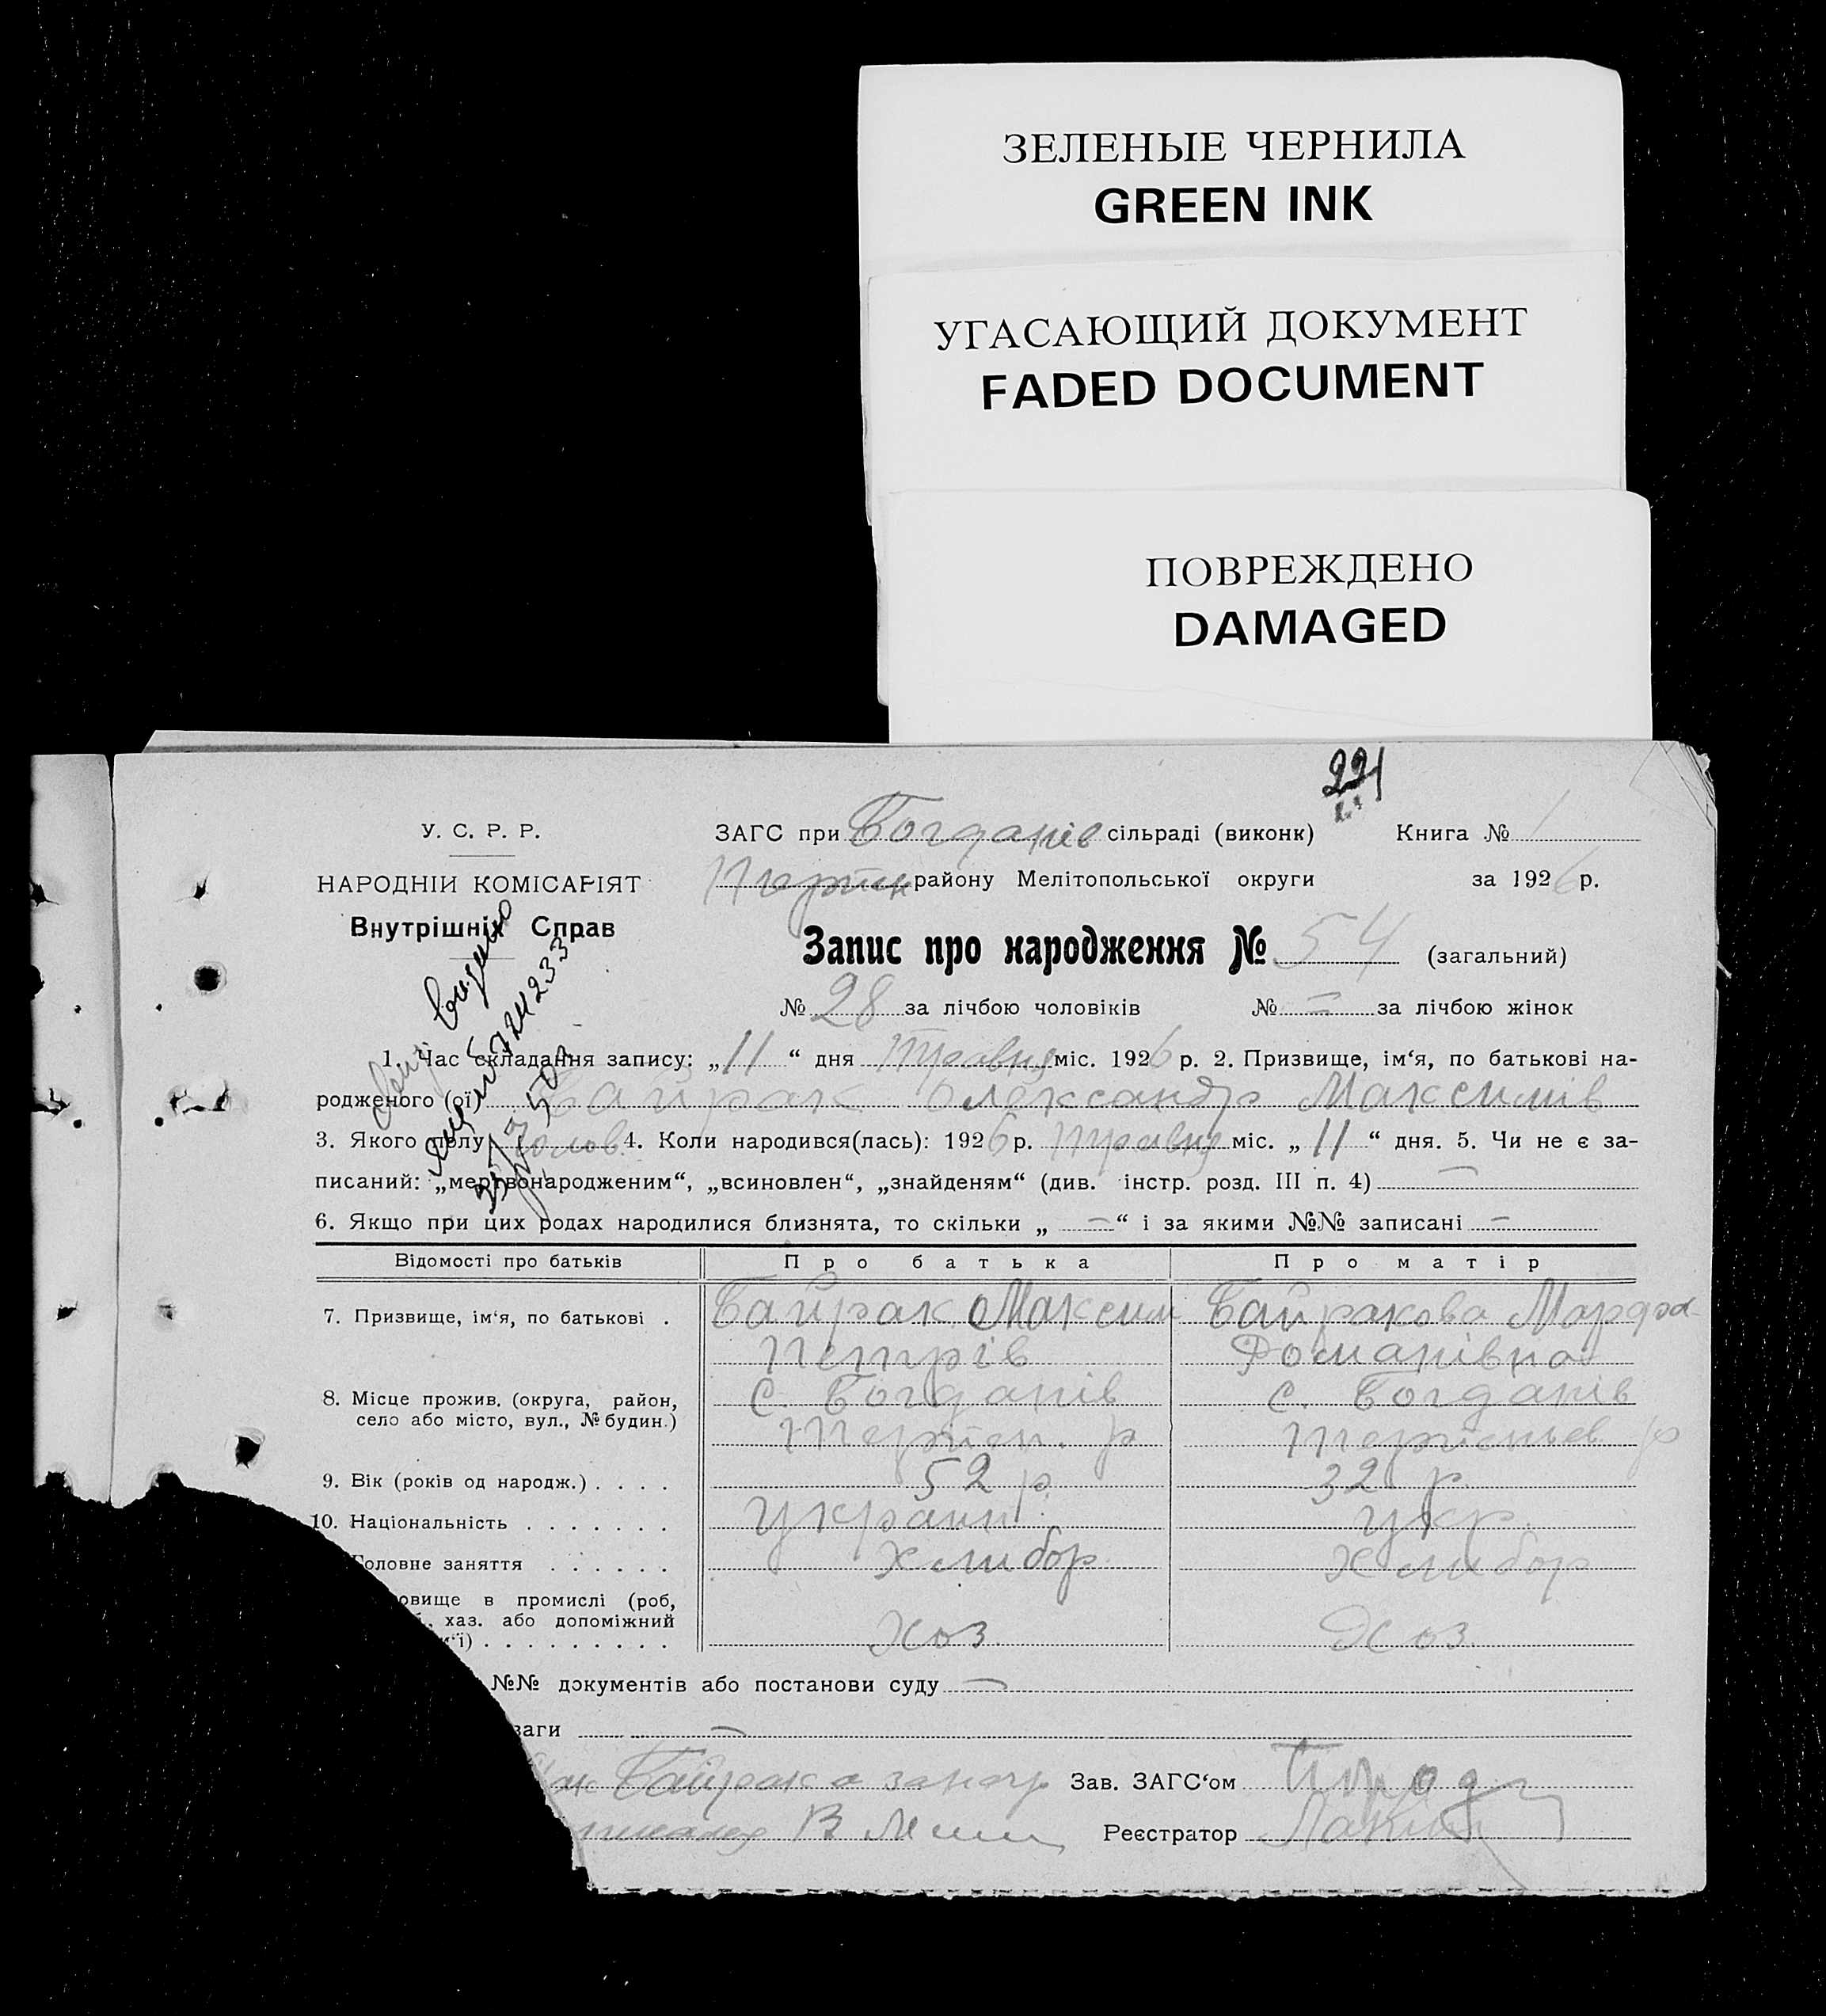 ЗЕЛЕНЫЕ ЧЕРНИЛА
GREEN INK
УГАСАЮЩИЙ ДОКУМЕНТ
FADED DOCUMENT
ПОВРЕЖДЕНО
DAMAGED
221
У. С. Р. Р.
ЗАГС при Богданів сільраді (виконк) Книга № 1
НАРОДНІЙ КОМІСАРІЯТ
району Мелітопольської округи за 1926 р.
Внутрішніх Справ
Запис про народження № 54 (загальний)
№ 28 за лічбою чоловіків № – за лічбою жінок
1. Час складання запису: „11“ дня Травня міс. 1926 р. 2. Призвище, ім‘я, по батькові на-
родженого (ої) Байрак Олександр Максимів
3. Якого полу Чолов. 4. Коли народився(лась): 1926 р. Травня міс. „11“ дня. 5. Чи не є за-
писаний: „мертвонародженим“, „всиновлен“, „знайденям“ (див. інстр. розд. III п. 4) —
6. Якщо при цих родах народилися близнята, то скільки „ — “ і за якими №№ записані —
Відомості про батьків Про батька Про матір
7. Призвище, ім‘я, по батькові . Байрак Максим Байракова Марфа
Петрів Романівна
8. Місце прожив. (округа, район, с. Богданів с. Богданів
село або місто, вул., № будин.)
9. Вік (років од народж.) . . . . 52 р. 32 р.
10. Національність . . . . . . . Україн. укр.
Головне заняття . . . . . . Хлибор Хлибор
овище в промислі (роб,
хаз. або допоміжний
‘ї) . . . . . . . . . Хоз. Хоз.
№№ документів або постанови суду —
ваги —
Байрака Зав. ЗАГС‘ом
Реєстратор